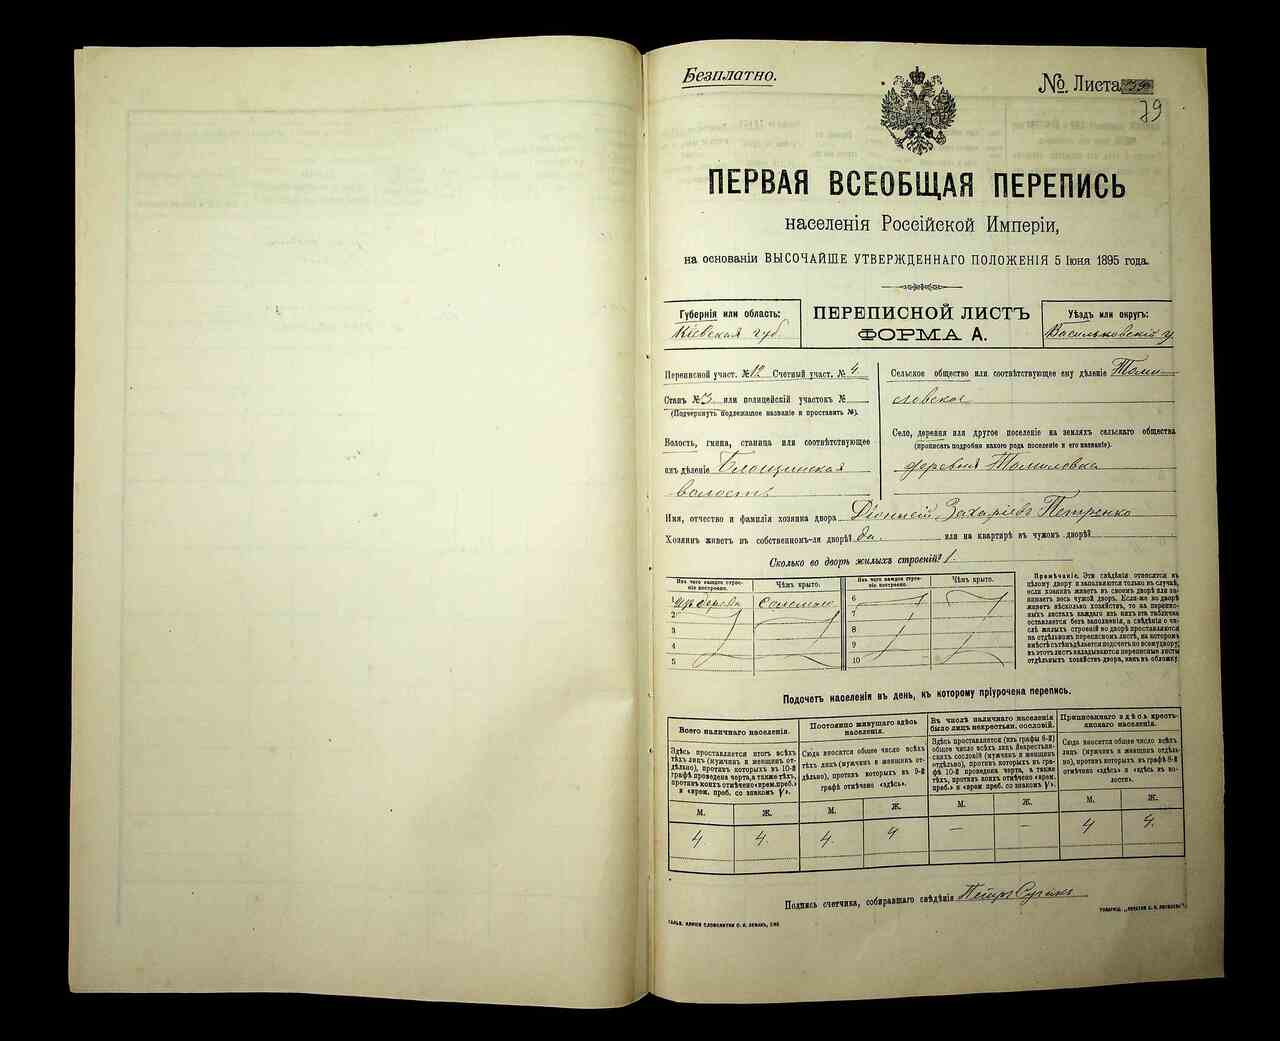 Безплатно.
№ Листа 39
79
ПЕРВАЯ ВСЕОБЩАЯ ПЕРЕПИСЬ
населенія Россійской Имперіи,
на основаніи ВЫСОЧАЙШЕ УТВЕРЖДЕННАГО ПОЛОЖЕНІЯ 5 Іюня 1895 года.
Губернія или область:
Кіевская губ.
ПЕРЕПИСНОЙ ЛИСТЪ
ФОРМА А.
Уѣздъ или округъ:
Васильковскій у.
Переписной участ. № 12 Счетный участ. № 4
Станъ № 3 или полицейскій участокъ №
(Подчеркнуть подлежащее названіе и проставить №).
Волость, гмина, станица или соотвѣтствующее
имъ дѣленіе Блощинская
волость
Сельское общество или соотвѣтствующее ему дѣленіе Томи-
ловское
Село, деревня или другое поселеніе на земляхъ сельскаго общества
(прописать подробно какого рода поселеніе и его названіе).
деревня Томиловка
Имя, отчество и фамилія хозяина двора Діонисій Захаріевъ Петренко
Хозяинъ живетъ въ собственномъ-ли дворѣ? да. или на квартирѣ въ чужомъ дворѣ?
Сколько во дворѣ жилыхъ строеній? 1.
Изъ чего каждое строеніе построено.
Чѣмъ крыто.
Изъ чего каждое строеніе построено.
Чѣмъ крыто.
1 изъ дерева Соломою
2
3
4
5
6
7
8
9
10
Примѣчаніе. Эти свѣдѣнія относятся къ
цѣлому двору и заполняются только въ случаѣ,
если хозяинъ живетъ въ своемъ дворѣ или за-
нимаетъ весь чужой дворъ. Если-же во дворѣ
живетъ нѣсколько хозяйствъ, то на перепис-
ныхъ листахъ каждаго изъ нихъ эта табличка
оставляется безъ заполненія, а свѣдѣнія о чи-
слѣ жилыхъ строеній во дворѣ проставляются
на отдѣльномъ переписномъ листѣ, на которомъ
вмѣстѣ съ тѣмъ дѣлается подсчетъ по всему двору;
въ этотъ листъ вкладываются переписные листы
отдѣльныхъ хозяйствъ двора, какъ въ обложку.
Подсчетъ населенія въ день, къ которому пріурочена перепись.
Всего наличнаго населенія.
Здѣсь проставляется итогъ всѣхъ
тѣхъ лицъ (мужчинъ и женщинъ от-
дѣльно), противъ которыхъ въ 10-й
графѣ проведена черта, а также тѣхъ,
противъ коихъ отмѣчено «врем. преб.»
и «врем. преб. со знакомъ V».
Постоянно живущаго здѣсь
населенія.
Сюда вносится общее число всѣхъ
тѣхъ лицъ (мужчинъ и женщинъ от-
дѣльно), противъ которыхъ въ 9-й
графѣ отмѣчено «здѣсь».
Въ числѣ наличнаго населенія
было лицъ некрестьян. сословій.
Здѣсь проставляется (изъ графы 6-й)
общее число всѣхъ лицъ некрестьян-
скихъ сословій (мужчинъ и женщинъ
отдѣльно), противъ которыхъ въ гра-
фѣ 10-й проведена черта, а также
тѣхъ, противъ коихъ отмѣчено «врем.
преб.» и «врем. преб. со знакомъ V».
Приписаннаго здѣсь кресть-
янскаго населенія.
Сюда вносится общее число всѣхъ
лицъ (мужчинъ и женщинъ отдѣль-
но), противъ которыхъ въ графѣ 8-й
отмѣчено «здѣсь» и «здѣсь въ во-
лости».
М. Ж. М. Ж. М. Ж. М. Ж.
4 4. 4. 4 — — 4 4.
Подпись счетчика, собиравшаго свѣдѣнія Петръ